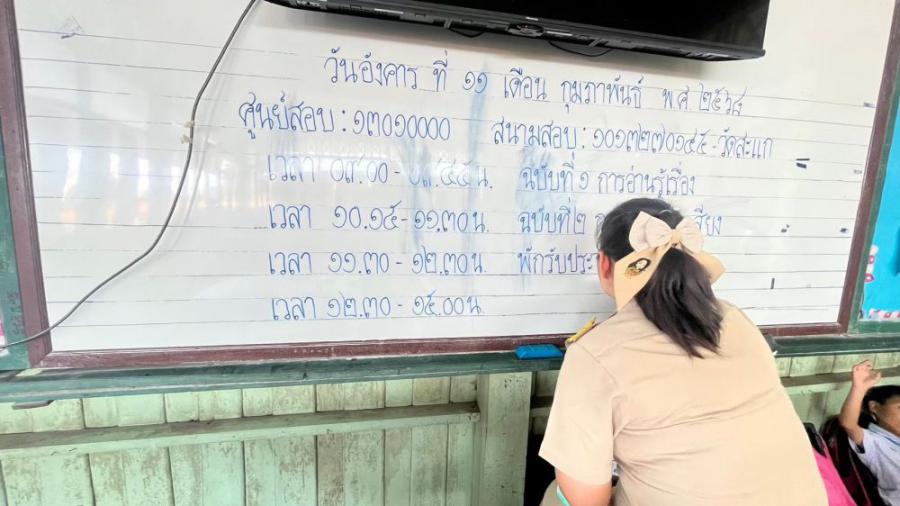 วันอังคาร ที่ ๑๑ เดือน กุมภาพันธ์ พ.ศ ๒๕๖๘
ศูนย์สอบ : ๑๓๐๑๐๐๐๐ สนามสอบ : ๑๐๑๓๒๗๐๑๔๕ - วัดสะแก
เวลา ๐๙.๐๐ - น. ฉบับที่ ๑ การอ่านรู้เรื่อง
เวลา ๑๐.๑๕ - ๑๑.๓๐ น. ฉบับที่ ๒ สียง
เวลา ๑๑.๓๐ - ๑๒.๓๐ น. พักรับประ
เวลา ๑๒.๓๐ - ๑๕.๐๐ น